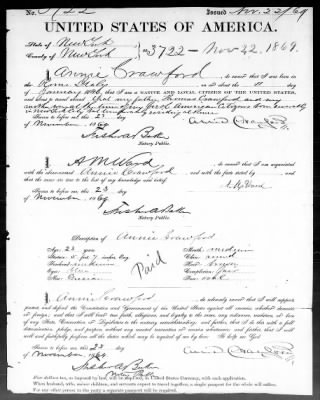 No. 3722 Issued Nov. 22/69
UNITED STATES OF AMERICA.
State of New York
County of New York
3722 - Nov 22. 1869.
I Annie Crawford, do swear that I was born in
Rome Italy on or about the 11 day
of January 1846, that I am a NATIVE and LOYAL CITIZEN OF THE UNITED STATES,
that my father Thomas Crawford and my
Sworn to before me this 23 day
of November 1869
Annie Crawford
Notary Public.
I A M Ward, do swear that I am acquainted
with the above-named Annie Crawford and with the facts stated by
and that the same are true to the best of my knowledge and belief.
Sworn to before me this 23 day
of November 1869
A. M. Ward
Notary Public.
Description of Annie Crawford
Age: 23 years
Mouth: medium
Stature: 5 feet 7 inches Eng.
Chin: round
Forehead: medium
Hair: brown
Eyes: blue
Complexion: fair
Nose: Grecian
Face: oval
Paid
I Annie Crawford, do solemnly swear that I will support,
protect and defend the Constitution and Government of the United States against all enemies, whether domestic
or foreign, and that I will bear true faith, allegiance and loyalty to the same, any ordinance, resolution or law
of any State, Convention or Legislature to the contrary notwithstanding; and further, that I do this with a full
determination, pledge, and purpose, without any mental reservation or evasion whatsoever; and further, that I will
well and faithfully perform all the duties which may be required of me by law: So help me God!
Sworn to before me this 23 day
of November 1869
Annie Crawford
Notary Public
When husband, wife, minor children, and servants expect to travel together, a single passport for the whole will suffice.
For any other person in the party, a separate passport will be required.